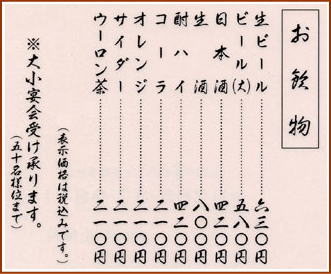 お飲物
生ビール………六三〇円
ビール(大)………五八〇円
日本酒………四二〇円
生酒………八〇〇円
酎ハイ………四二〇円
コーラ………二一〇円
オレンジ………二一〇円
サイダー………二一〇円
ウーロン茶………二一〇円
(表示価格は税込みです。)
※大小宴会受け承ります。
(五十名様位まで)